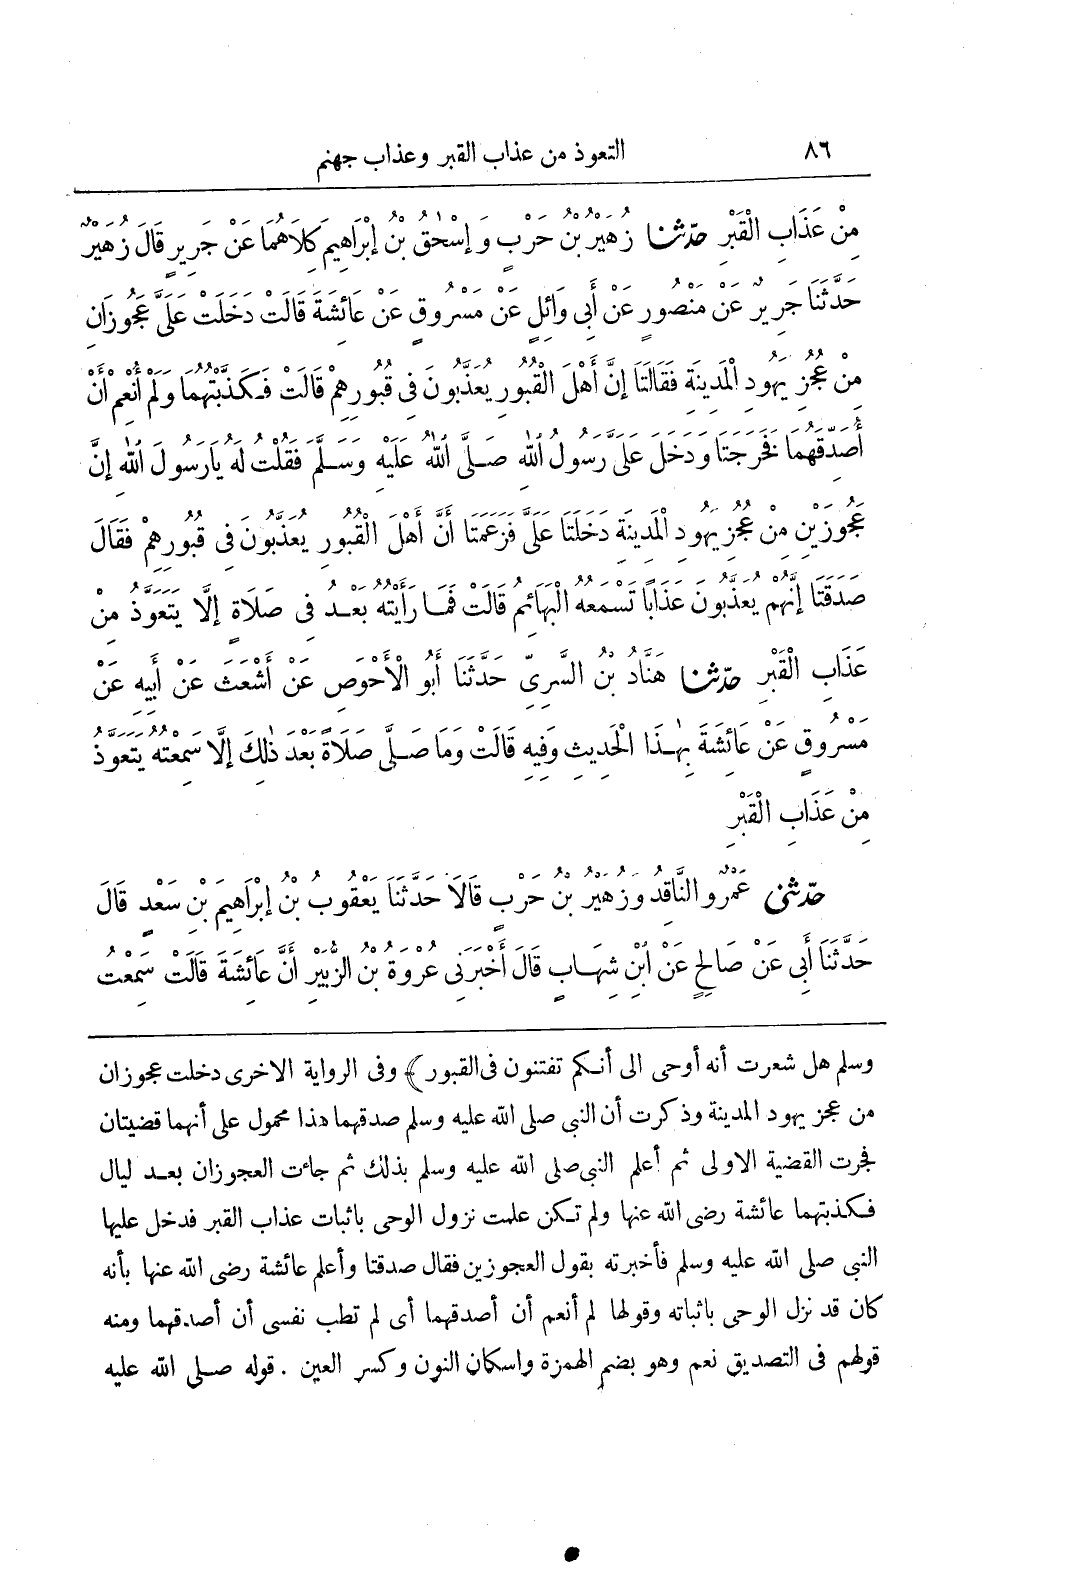 ٨٦ التعوذ من عذاب القبر وعذاب جهنم
مِنْ عَذَابِ الْقَبْرِ حَدَّثَنَا زُهَيْرُ بْنُ حَرْبٍ وَإِسْحٰقُ بْنُ إِبْرَاهِيمَ كِلَاهُمَا عَنْ جَرِيرٍ قَالَ زُهَيْرٌ
حَدَّثَنَا جَرِيرٌ عَنْ مَنْصُورٍ عَنْ أَبِى وَائِلٍ عَنْ مَسْرُوقٍ عَنْ عَائِشَةَ قَالَتْ دَخَلَتْ عَلَىَّ عَجُوزَانِ
مِنْ عُجُزِ يَهُودِ الْمَدِينَةِ فَقَالَتَا إِنَّ أَهْلَ الْقُبُورِ يُعَذَّبُونَ فِى قُبُورِهِمْ قَالَتْ فَكَذَّبْتُهُمَا وَلَمْ أُنْعِمْ أَنْ
أُصَدِّقَهُمَا فَخَرَجَتَا وَدَخَلَ عَلَىَّ رَسُولُ اللّٰهِ صَلَّى اللّٰهُ عَلَيْهِ وَسَلَّمَ فَقُلْتُ لَهُ يَارَسُولَ اللّٰهِ إِنَّ
عَجُوزَيْنِ مِنْ عُجُزِ يَهُودِ الْمَدِينَةِ دَخَلَتَا عَلَىَّ فَزَعَمَتَا أَنَّ أَهْلَ الْقُبُورِ يُعَذَّبُونَ فِى قُبُورِهِمْ فَقَالَ
صَدَقَتَا إِنَّهُمْ يُعَذَّبُونَ عَذَابًا تَسْمَعُهُ الْبَهَائِمُ قَالَتْ فَمَا رَأَيْتُهُ بَعْدُ فِى صَلَاةٍ إِلَّا يَتَعَوَّذُ مِنْ
عَذَابِ الْقَبْرِ حَدَّثَنَا هَنَّادُ بْنُ السَّرِىِّ حَدَّثَنَا أَبُو الْأَحْوَصِ عَنْ أَشْعَثَ عَنْ أَبِيهِ عَنْ
مَسْرُوقٍ عَنْ عَائِشَةَ بِهٰذَا الْحَدِيثِ وَفِيهِ قَالَتْ وَمَا صَلَّى صَلَاةً بَعْدَ ذٰلِكَ إِلَّا سَمِعْتُهُ يَتَعَوَّذُ
مِنْ عَذَابِ الْقَبْرِ
حَدَّثَنِى عَمْرٌو النَّاقِدُ وَزُهَيْرُ بْنُ حَرْبٍ قَالَا حَدَّثَنَا يَعْقُوبُ بْنُ إِبْرَاهِيمَ بْنِ سَعْدٍ قَالَ
حَدَّثَنَا أَبِى عَنْ صَالِحٍ عَنْ ابْنِ شِهَابٍ قَالَ أَخْبَرَنِى عُرْوَةُ بْنُ الزُّبَيْرِ أَنَّ عَائِشَةَ قَالَتْ سَمِعْتُ
وسلم هل شعرت أنه أوحى الى أنكم تفتنون فى القبور﴾ وفى الرواية الاخرى دخلت عجوزان
من عجز يهود المدينة وذكرت أن النبى صلى الله عليه وسلم صدقهما هذا محمول على أنهما قضيتان
فجرت القضية الاولى ثم أعلم النبى صلى الله عليه وسلم بذلك ثم جاءت العجوزان بعد ليال
فكذبتهما عائشة رضى الله عنها ولم تكن علمت نزول الوحى باثبات عذاب القبر فدخل عليها
النبى صلى الله عليه وسلم فأخبرته بقول العجوزين فقال صدقتا وأعلم عائشة رضى الله عنها بأنه
كان قد نزل الوحى باثباته وقولها لم أنعم أن أصدقهما أى لم تطب نفسى أن أصدقهما ومنه
قولهم فى التصديق نعم وهو بضم الهمزة واسكان النون وكسر العين . قوله صلى الله عليه